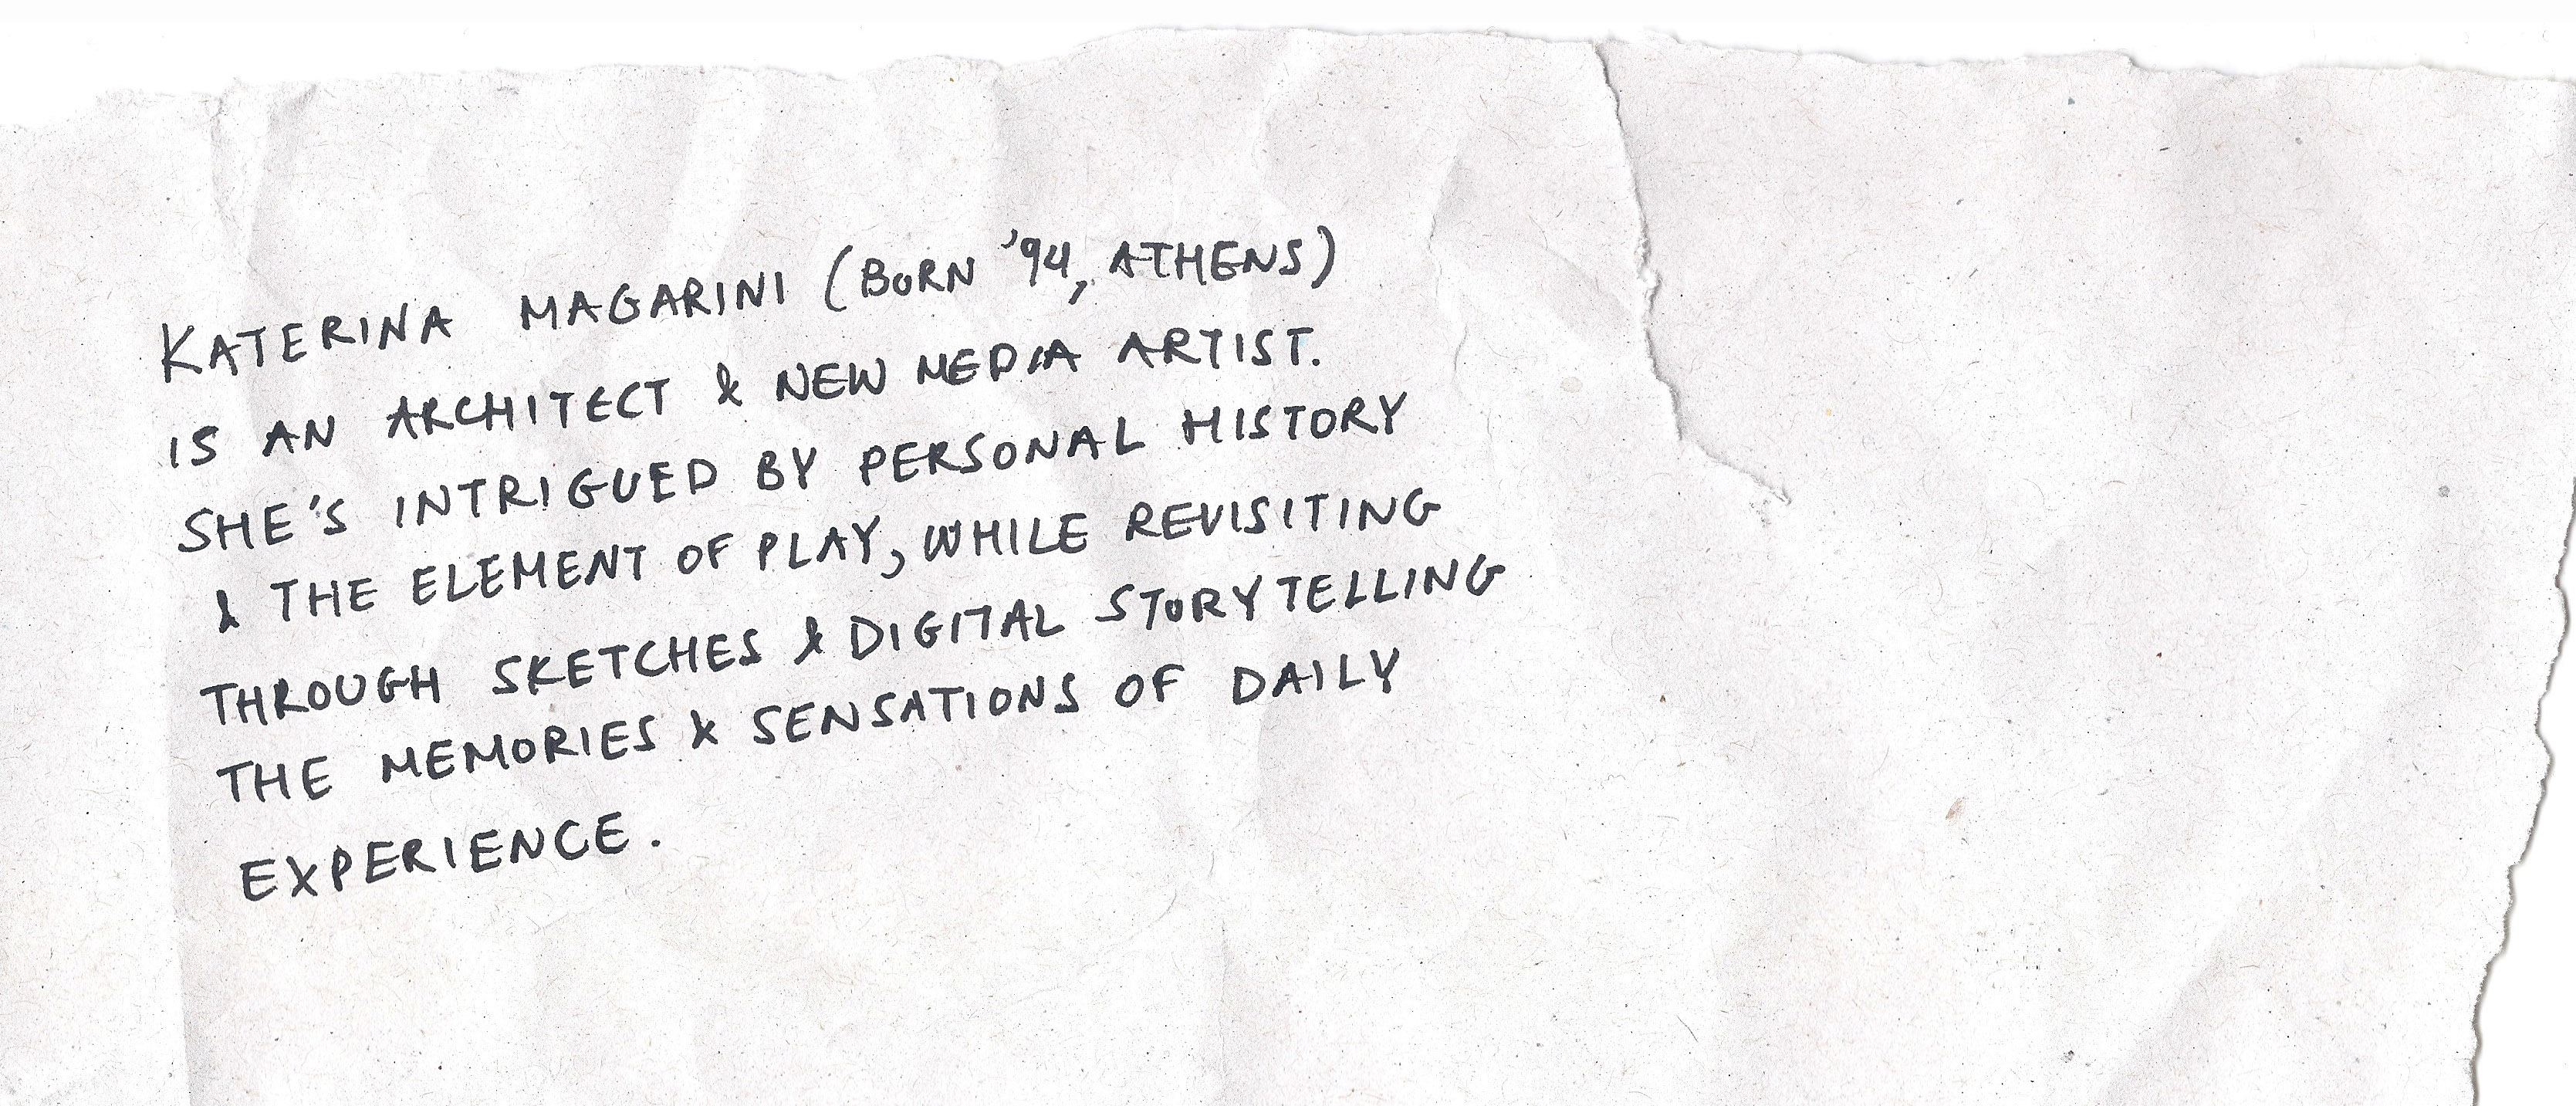 KATERINA MAGARINI (BORN '94, ATHENS)
IS AN ARCHITECT & NEW MEDIA ARTIST.
SHE'S INTRIGUED BY PERSONAL HISTORY
& THE ELEMENT OF PLAY, WHILE REVISITING
THROUGH SKETCHES & DIGITAL STORYTELLING
THE MEMORIES & SENSATIONS OF DAILY
EXPERIENCE.